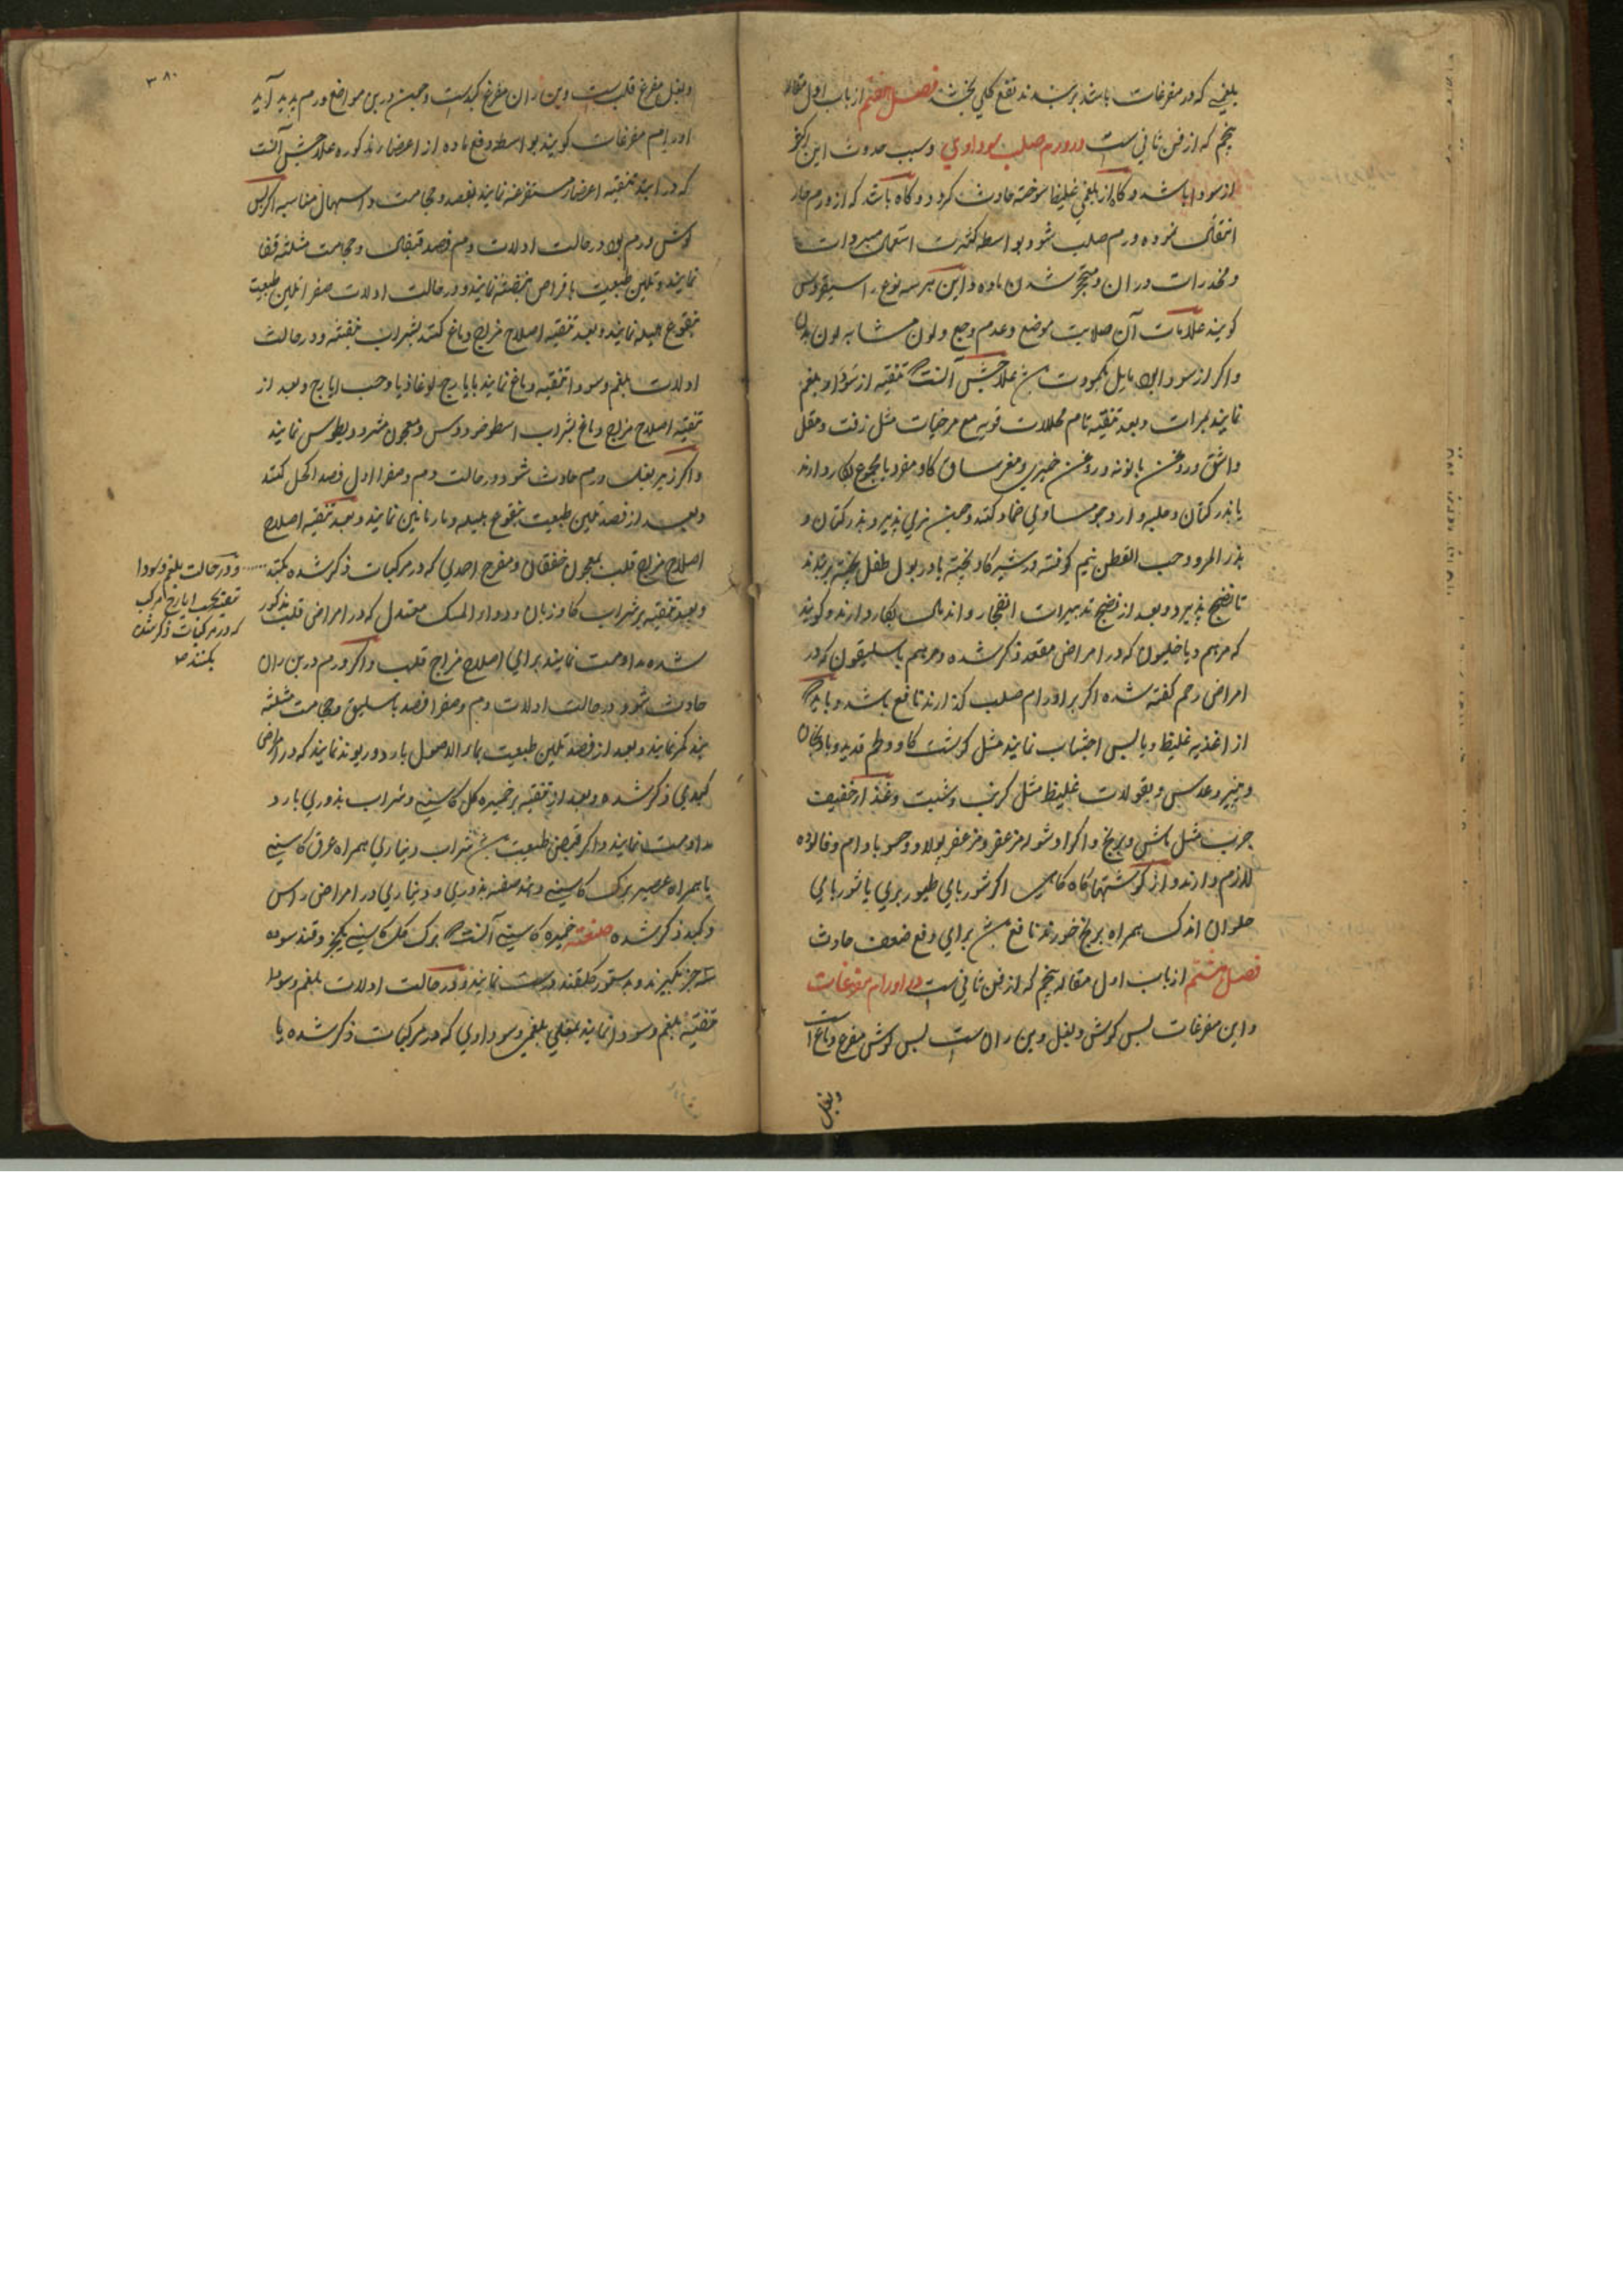 بلغمی که در مفرغات باشد برسند نفع کلی بخشد فصل هفتم از باب اول مقاله
پنجم که از فن ثانی ست در ورم صلب سوداوی و سبب حدوث این اکثر
از سودا باشد و گاه از بلغمی غلیظ سوخته حادث کردد و گاه باشد که از ورم حار
انتقال نموده ورم صلب شود بواسطه کثرت استعمال مبردات
و مخدرات در ان و متحجر شدن ماده و این هر سه نوع را سقیروس
کویند علامات آن صلابت موضع و عدم وجع و لون مشابه لون بدن
و اکر از سودا بود مایل بکمودت علاجش آنست که تنقیه از سودا و بلغم
نمایند بمرات و بعد تنقیه تام محللات قویه مع مرخیات مثل زفت و مقل
و اشق و روغن بابونه و روغن خیری و مغز ساق کاو مفرد یا مجموع بکار دارند
یا بذر کتان و حلبه و ارد جو مساوی ضماد کنند و همین بذر کتان و
بذر المرو و حب القطن نیم کوفته در شیر کاو پخته یا در بول طفل پخته برنهند
تا نضج پذیرد و بعد از نضج تدبیرات انفجار و اندمال بکار دارند و کویند
که مرهم دیاخلیون که در امراض مقعد ذکر شده و مرهم باسلیقون که در
امراض رحم کفته شده اکر بر اورام صلب کذارند نافع باشد و باید که
از اغذیه غلیظ و یابس اجتناب نمایند مثل کوشت کاو و لحم قدید و بادنجان
و پنیر و عدس و بقولات غلیظ مثل کرنب و شبت و غذا خفیف
چرب مثل ماش و برنج و اکر دشوار مزعفر و مزعفر پولاو و حسو بادام و فالوده
لازم دارند و از کوشتها گاه گاهی اکر شوربای طیور بری یا شوربای
حلوان اندک همراه برنج خورند نافع برای دفع ضعف حادث
فصل هشتم از باب اول مقاله پنجم که از فن ثانی ست در اورام مفرغات
و این مفرغات پس کوش و بغل و بن ران ست پس کوش مفرغ دماغ است
وبغل
۳۸۰
و بغل مفرغ قلب ست و بن ران مفرغ کبد ست و همین درین مواضع ورم پدید آید
اورام مفرغات کویند بواسطه دفع ماده از اعضاء مذکوره علاجش آنست
که در ابتدا تنقیه اعضاء مستفرغه نمایند بفصد و حجامت و اسهال مناسبه اکر پس
کوش ورم بود در حالت اولات دم فصد قیفال و حجامت مثلثه قفا
نمایند و تلین طبیعت باقراص بنفشه نمایند و در حالت اولات صفرا تلین طبیعت
بنقوع هلیله نمایند و بعد تنقیه اصلاح مزاج دماغ کنند بشراب بنفشه و در حالت
اولات بلغم و سودا تنقیه دماغ نمایند بایارج لوغاذیا و حب ایارج و بعد از
تنقیه اصلاح مزاج دماغ بشراب اسطوخودوس و معجون مثرودیطوس نمایند
و اکر زیر بغل ورم حادث شود در حالت دم و صفرا اول فصد اکحل کنند
و بعد از فصد تلین طبیعت بنقوع هلیله و نارنانین نمایند و بعد تنقیه اصلاح
اصلاح مزاج قلب بمعجون خفقان و مفرح احمدی که در مرکبات ذکر شده بکنند
و بعد تنقیه بر شراب کاوزبان و دواء المسک معتدل که در امراض قلب مذکور
شده مداومت نمایند برای اصلاح مزاج قلب و اکر ورم در بن ران
حادث شود در حالت اولات دم و صفرا فصد باسلیق و حجامت مثلثه
بند کمر نمایند و بعد از فصد تلین طبیعت بماء الاصول بارد و ریوند نمایند که در امراض
کبدی ذکر شده و بعد از تنقیه بر خمیره کل کاسنی و شراب بذوری بارد
مداومت نمایند و اکر قبض طبیعت شراب دیناری همراه عرق کاسنی
یا همراه عصیر برک کاسنی دهند صفت بذوری و دیناری در امراض راس
و کبد ذکر شده صنعت خمیره کاسنی آنست که برک کل کاسنی یکجز و قند سوده
سه جز بکیرند و بدستور کلقند درست نمایند و در حالت اولات بلغم و سودا
تنقیه بلغم و سودا نمایند بمغلی بلغمی و سوداوی که در مرکبات ذکر شده یا
و در حالت بلغم و سودا
تنقیه بحب ایارج مرکب
که در مرکبات ذکر شده
بکنند صح